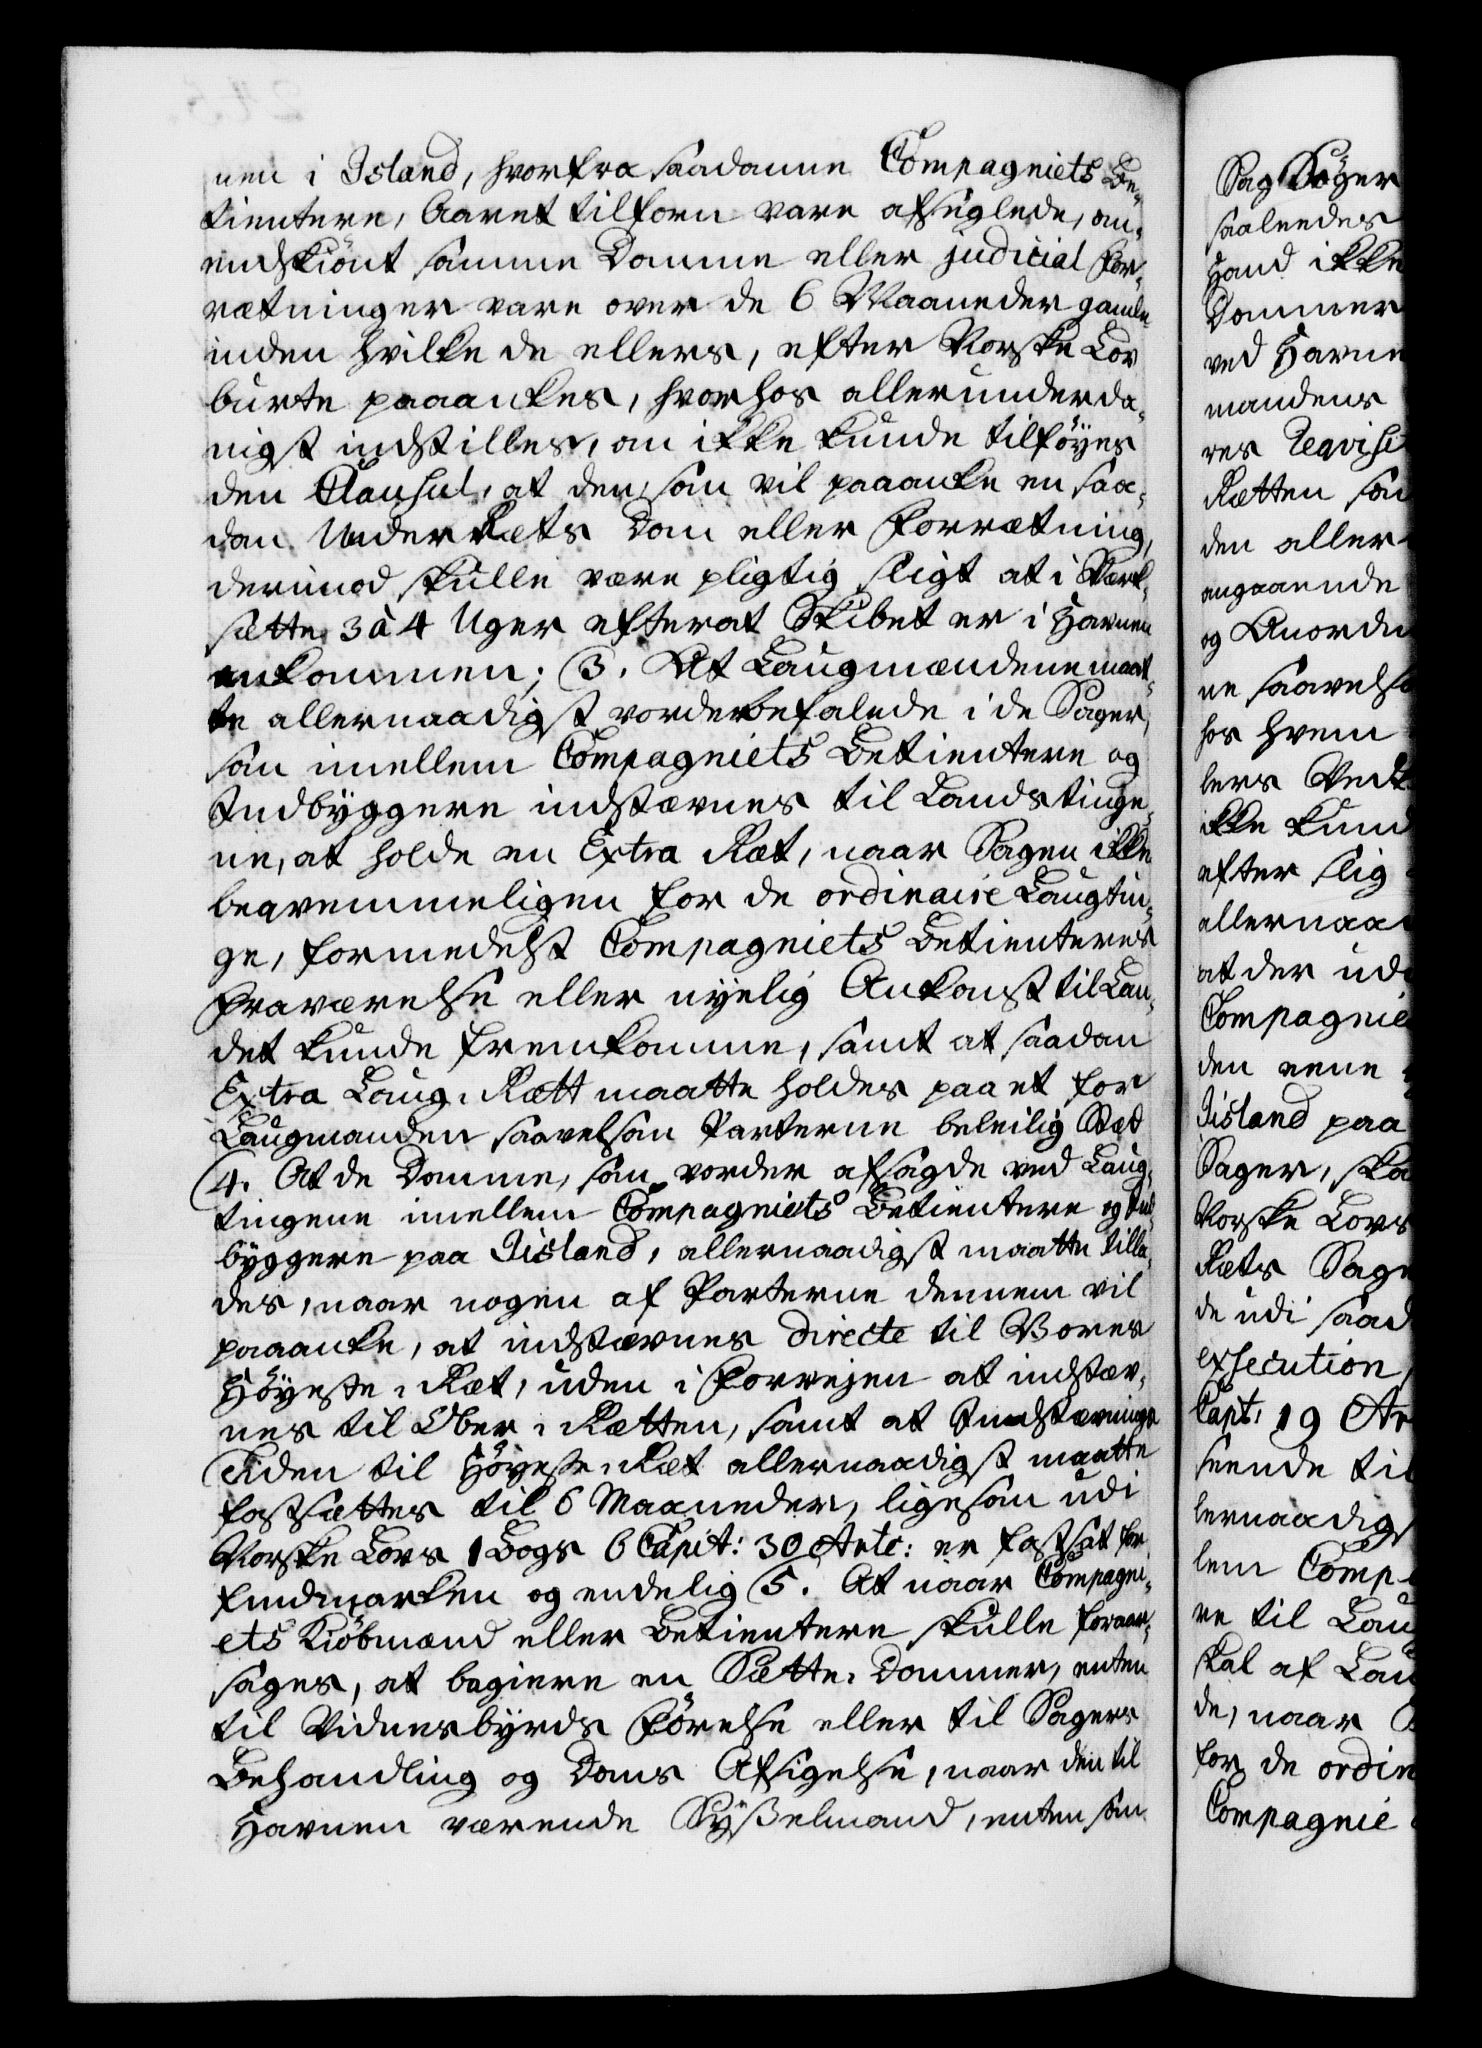 nen i Island, hvorfra saadanne Compagniets Be-
tientere, Aaret tilforn vare afseglede, an-
endskiönt samme Domme eller judicial for-
rætninger vare over de 6 Maaneder gamle
inden hvilke de ellers, efter Norske Lov
burte paaankes, hvorhos allerunderda-
nigst indstilles, om ikke kunde tilföyes
den Clausul, at den, som vil paaanke en saa-
dan UnderRæts Dom eller Forrætning,
derimod skulle være pligtig sligt at i Værk-
sætte 3 à 4 Uger efterat Skibet er i Havnen
ankommen; 3. At Laugmændene maat-
te allernaadigst vorde befalede i de Sager,
som imellem Compagniets Betientere og
Indbyggere indstævnes til Landstinge-
ne, at holde en Extra Ræt, naar Sagen ikke
beqvemmeligen for de ordinaire Laugtin-
ge, formedelst Compagniets Betienteres
Fraværelse eller nyelig Ankomst til Lan-
det kunde fremkomme, samt at saadan
Extra Laug-Rætt maatte holdes paa et for
Laugmanden saavelsom Parterne beleilig Stæd
4. At de Domme, som vorder afsagde ved Laug-
tingene imellem Compagniets Betientere og Ind-
byggere paa Iisland, allernaadigst maatte tilla-
des, naar nogen af Parterne dennem vil
paaanke, at indstævnes directe til Vores
Höyeste-Ræt, uden i Forvejen at indstæv-
nes til Ober-Rætten, samt at Indstævnings
Tiden til Höyeste-Ræt allernaadigst maatte
fastsættes til 6 Maaneder, ligesom udi
Norske Lovs 1 Bogs 6 Capit: 30 Artc: er fastsat for
Findmarken og endelig 5. At naar Compagni-
ets Kiöbmænd eller Betientere skulle foraar-
sages, at begiere en Sætte-Dommer, enten
til Vidnesbyrds Förelse eller til Sagers
Behandling og Doms Afsigelse, naar den til
Havnen værende Sysselmand, enten som
Sag Söger
saaleedes
Hand ikke
Dommer
ved Havne
mandens
res Reqvisi
Rætten som
den aller-
angaaende
og Anordn
ne saavelso
hos hvem
lers Ved
ikke kund
efter slig
allernaa
at der ud
Compagnie
den eene
Iisland paa
Sager, ska
Norske Lovs
Ræts Sage
de udi saad
exsecution,
Capt: 19 Ar
seende til
lernaadigs
lem Comp-
re til Lau
skal af Lau
de, naar
for de ordin
Compagnie